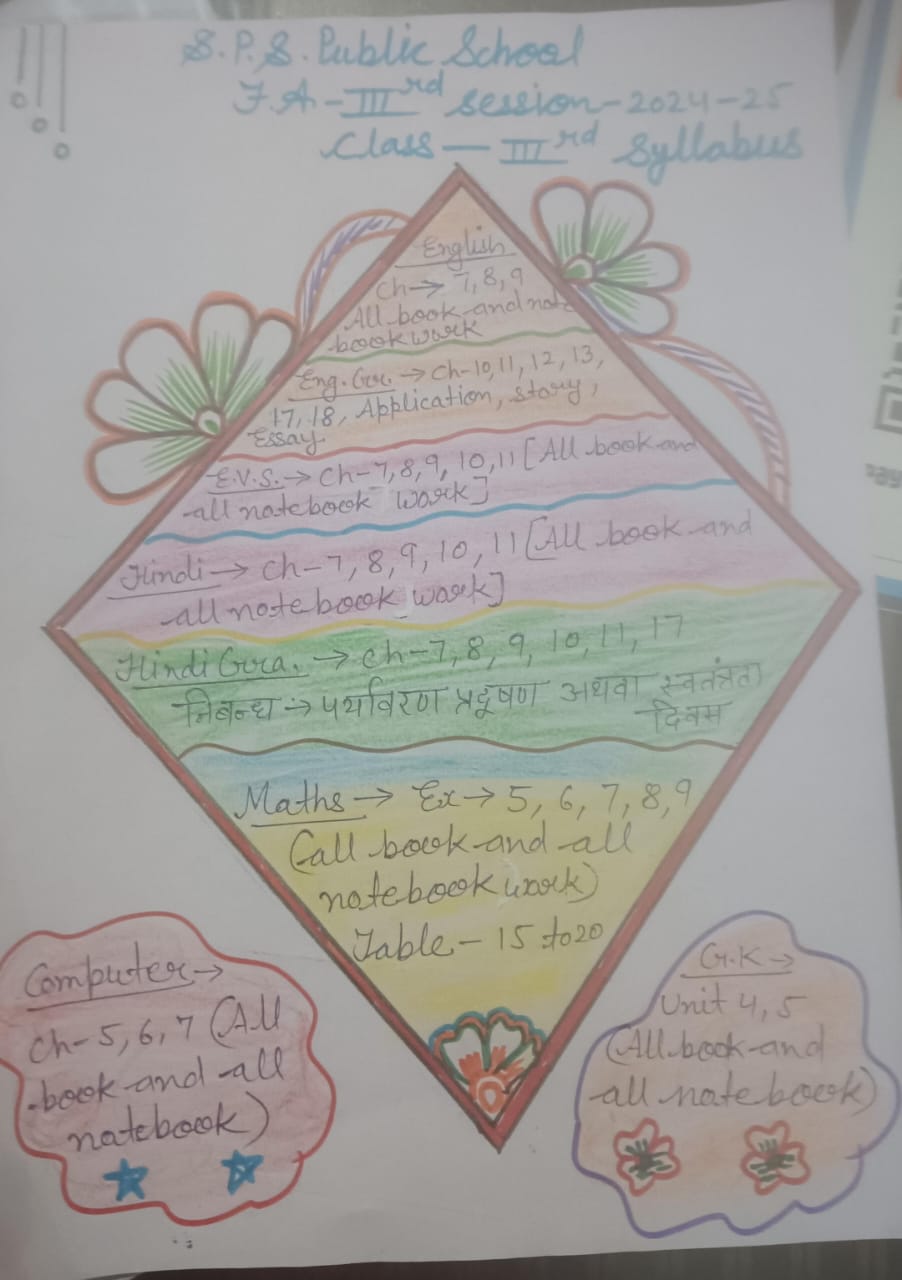 S.P.S. Public School
F.A-IIIrd session-2024-25
Class-IIIrd Syllabus
English
Ch→ 7,8,9
All book and note
book work
Eng. Gr. → Ch-10,11, 12, 13,
17,18, Application, story,
Essay
E.V.S.→ Ch-7,8,9, 10,11 [All book and
all notebook work]
Hindi→ Ch-7,8,9,10,11 [All book and
all notebook work]
Hindi Gra. → Ch-7,8, 9, 10,11, 17
निबन्ध → पर्यावरण प्रदूषण अथवा स्वतंत्रता
दिवस
Maths→ Ex→ 5, 6, 7, 8,9
(all book and all
notebook work)
Table - 15 to 20
Computer→
Ch-5,6,7 (All
book and all
notebook)
G.K→
Unit 4,5
(All book and
all notebook)